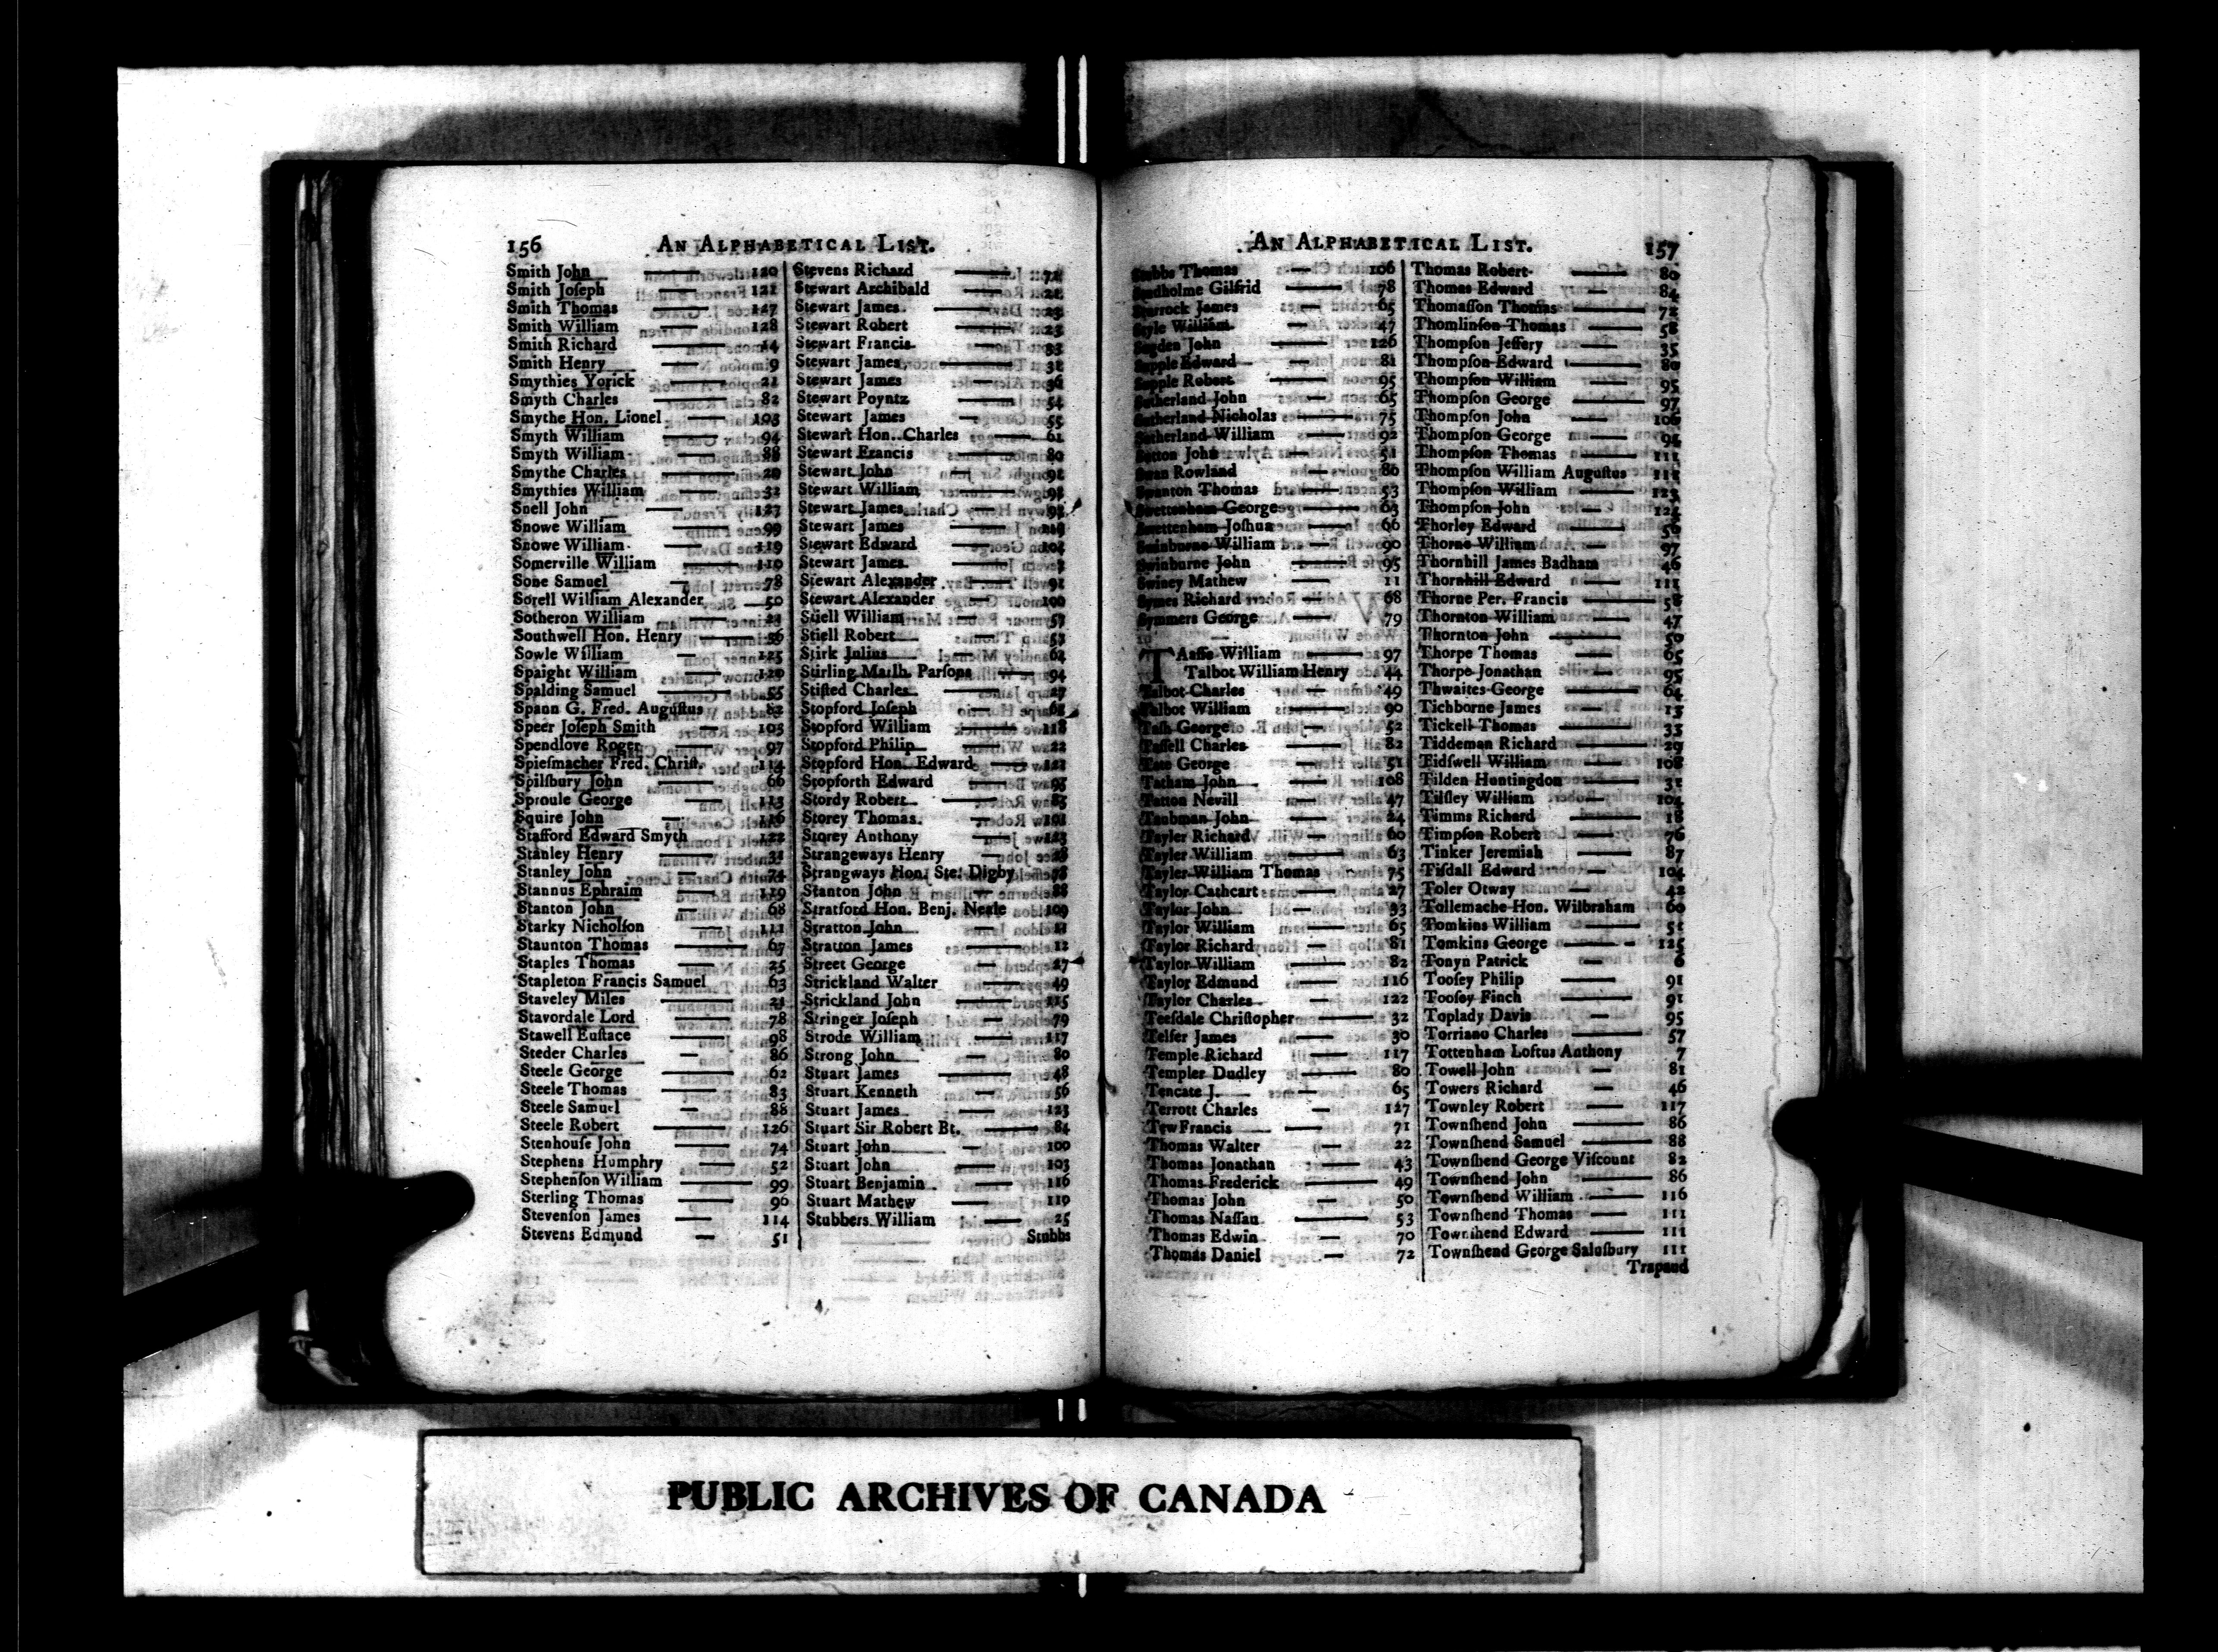 156 AN ALPHABETICAL LIST.
Smith John 120
Smith Joſeph 121
Smith Thomas 127
Smith William 128
Smith Richard 14
Smith Henry 9
Smythies Yorick 21
Smyth Charles 82
Smythe Hon. Lionel 103
Smyth William 94
Smyth William 88
Smythe Charles 20
Smythies William 32
Snell John 123
Snowe William 99
Snowe William 119
Somerville William 110
Sone Samuel 78
Sorell William Alexander 50
Sotheron William
Southwell Hon. Henry 56
Sowle William 125
Spaight William 120
Spalding Samuel 55
Spann G. Fred. Auguſtus 82
Speer Joſeph Smith 103
Spendlove Roger 97
Spieſmacher Fred. Chriſt. 114
Spilſbury John 66
Sproule George 113
Squire John 116
Stafford Edward Smyth 122
Stanley Henry 31
Stanley John 74
Stannus Ephraim 119
Stanton John 68
Starky Nicholſon 111
Staunton Thomas 67
Staples Thomas 25
Stapleton Francis Samuel 63
Staveley Miles 21
Stavordale Lord 78
Stawell Euſtace 98
Steder Charles 86
Steele George 62
Steele Thomas 83
Steele Samuel 88
Steele Robert 126
Stenhouſe John 74
Stephens Humphry 52
Stephenſon William 99
Sterling Thomas 96
Stevenſon James 114
Stevens Edmund 51
Stevens Richard 72
Stewart Archibald 21
Stewart James 23
Stewart Robert 23
Stewart Francis 33
Stewart James 32
Stewart James 36
Stewart Poyntz 54
Stewart James 55
Stewart Hon. Charles 61
Stewart Francis 80
Stewart John 91
Stewart William
Stewart James
Stewart James
Stewart Edward
Stewart James
Stewart Alexander 91
Stewart Alexander 100
Stiell William 57
Stiell Robert 53
Stirk Julius 62
Stirling Marlh. Parſons 94
Stiſted Charles 27
Stopford Joſeph
Stopford William 118
Stopford Philip 22
Stopford Hon. Edward
Stopforth Edward 95
Stordy Robert 83
Storey Thomas 101
Storey Anthony 123
Strangeways Henry 28
Strangways Hon. Ste. Digby 78
Stanton John 88
Stratford Hon. Benj. Neale 109
Stratton John 11
Stratton James 12
Street George 27
Strickland Walter 49
Strickland John 115
Stringer Joſeph 79
Strode William 117
Strong John 80
Stuart James 48
Stuart Kenneth 56
Stuart James 123
Stuart Sir Robert Bt. 84
Stuart John 100
Stuart John 103
Stuart Benjamin 116
Stuart Mathew 110
Stubbers William 25
Stubbs
AN ALPHABETICAL LIST. 157
Stubbs Thomas 106
Studholme Gilfrid 78
Sturrock James 65
Style William 47
Sugden John 126
Supple Edward 81
Supple Robert 95
Sutherland John 65
Sutherland Nicholas 75
Sutherland William 92
Sutton John 51
Swan Rowland 86
Swanton Thomas 53
Swettenham George 63
Swettenham Joſhua 66
Swinburne William 90
Swinburne John 95
Swiney Mathew 11
Symes Richard 68
Symmers George 79
TAaffe William 97
Talbot William Henry 44
Talbot Charles 49
Talbot William 90
Taſh George 52
Taſſell Charles 82
Tate George 51
Tatham John 108
Tatton Nevill 47
Taubman John 24
Tayler Richard 60
Tayler William 63
Tayler William Thomas 75
Taylor Cathcart 27
Taylor John 33
Taylor William 65
Taylor Richard 81
Taylor William 82
Taylor Edmund 116
Taylor Charles 122
Teeſdale Chriſtopher 32
Telfer James 30
Temple Richard 117
Templer Dudley 80
Tencate J. 65
Terrott Charles 127
Tew Francis 71
Thomas Walter 22
Thomas Jonathan 43
Thomas Frederick 49
Thomas John 50
Thomas Naſſau 53
Thomas Edwin 70
Thomas Daniel 72
Thomas Robert 80
Thomas Edward 84
Thomaſſon Thomas 72
Thomlinſon Thomas 58
Thompſon Jeffery 35
Thompſon Edward 80
Thompſon William 95
Thompſon George 97
Thompſon John 106
Thompſon George 94
Thompſon Thomas 111
Thompſon William Auguſtus 115
Thompſon William 123
Thompſon John 124
Thorley Edward 56
Thorne William 97
Thornhill James Badham 46
Thornhill Edward 111
Thorne Per. Francis 58
Thornton William 47
Thornton John 50
Thorpe Thomas 65
Thorpe Jonathan 95
Thwaites George 64
Tichborne James 13
Tickell Thomas 33
Tiddeman Richard 29
Tidſwell William 108
Tilden Huntingdon 31
Tilſley William 104
Timms Richard 18
Timpſon Robert 76
Tinker Jeremiah 87
Tiſdall Edward 104
Toler Otway 42
Tollemache Hon. Wilbraham 60
Tomkins William 51
Tomkins George 125
Tonyn Patrick 6
Tooſey Philip 91
Tooſey Finch 91
Toplady Davis 95
Torriano Charles 57
Tottenham Loftus Anthony 7
Towell John 81
Towers Richard 46
Townley Robert 117
Townſhend John 86
Townſhend Samuel 88
Townſhend George Viſcount 82
Townſhend John 86
Townſhend William 116
Townſhend Thomas 111
Townſhend Edward 111
Townſhend George Saluſbury 111
Trapaud
PUBLIC ARCHIVES OF CANADA